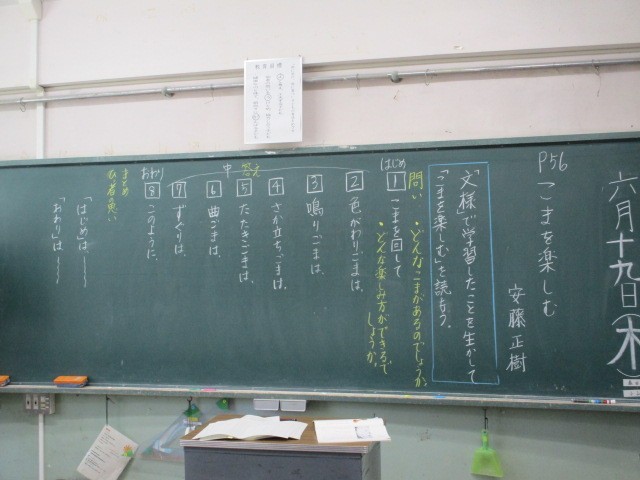 六月十九日(木)
P56 こまを楽しむ
安藤正樹
「文様」で学習したことを生かして
「こまを楽しむ」を読もう。
問い
・どんなこまがあるのでしょうか。
・どんな楽しみ方ができるで
しょうか。
はじめ
1 こまを回して
中
答え
2 色がわりごまは、
3 鳴りごまは、
4 さか立ちごまは、
5 たたきごまは、
6 曲ごまは、
7 ずぐりは、
おわり
8 このように、
まとめ
「はじめ」は
「おわり」は